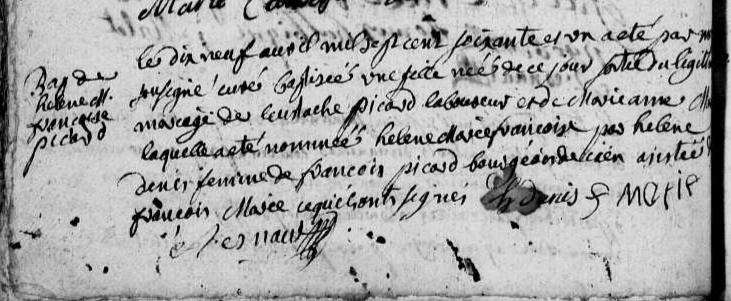 Marie
Bap de
helene M.
francoise
picard
Le dix neuf avril mil sept cent soixante et un a eté par m
sousigné curé baptisée une fille née de ce jour sortie du legiti
mariage de Eustache picard laboureur et de Marie anne
laquelle a eté nommée helene Marie francoise par helene
denis femme de francois picard bourgeois de caën assistée
francois Marie ce qu'ils ont signés h denis f Marie